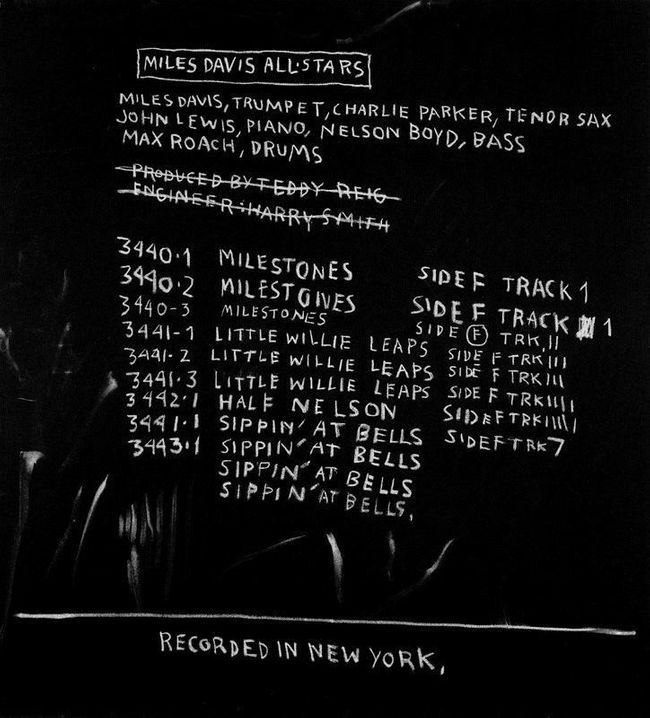 MILES DAVIS ALL·STARS
MILES DAVIS, TRUMPET, CHARLIE PARKER, TENOR SAX
JOHN LEWIS, PIANO, NELSON BOYD, BASS
MAX ROACH, DRUMS
PRODUCED BY TEDDY REIG
ENGINEER: HARRY SMITH
3440·1 MILESTONES SIDE F TRACK 1
3440·2 MILESTONES SIDE F TRACK 1
3440-3 MILESTONES SIDE F TRK II
3441-1 LITTLE WILLIE LEAPS SIDE F TRK III
3441·2 LITTLE WILLIE LEAPS SIDE F TRK IIII
3441·3 LITTLE WILLIE LEAPS SIDE F TRK IIIII
3442·1 HALF NELSON SIDE F TRK IIIII
3441·1 SIPPIN' AT BELLS SIDE F TRK 7
3443·1 SIPPIN' AT BELLS
SIPPIN' AT BELLS
SIPPIN' AT BELLS,
RECORDED IN NEW YORK,